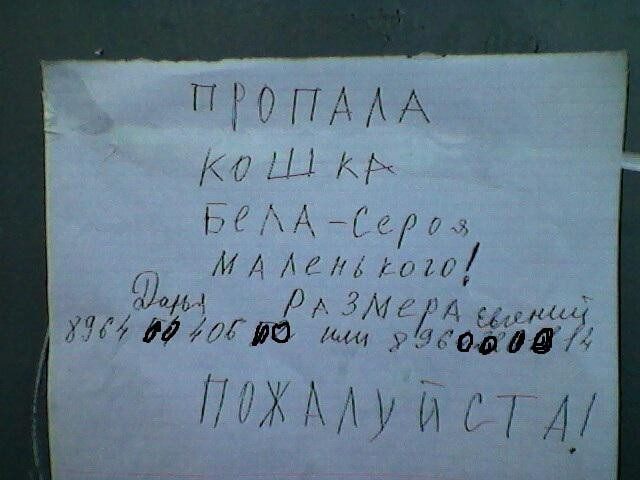 ПРОПАЛА
КОШКА
БЕЛА-Сероя
МАЛЕНЬКОГО!
Дарья РАЗМЕРА евгений
8964 406 или 896 14
ПОЖАЛУЙСТА!